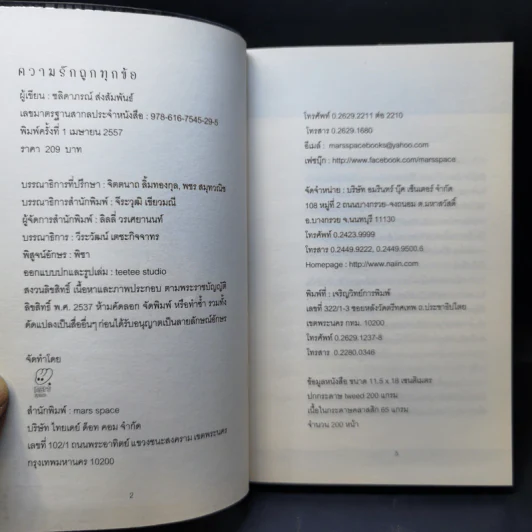 ความรักถูกทุกข้อ
ผู้เขียน : ชลิดาภรณ์ ส่งสัมพันธ์
เลขมาตรฐานสากลประจำหนังสือ : 978-616-7545-29-5
พิมพ์ครั้งที่ 1 เมษายน 2557
ราคา 209 บาท
บรรณาธิการที่ปรึกษา : จิตตนาถ ลิ้มทองกุล, พชร สมุทวณิช
บรรณาธิการสำนักพิมพ์ : จีระวุฒิ เขียวมณี
ผู้จัดการสำนักพิมพ์ : ลิลลี่ วรเศยานนท์
บรรณาธิการ : วีระวัฒน์ เตชะกิจจาทร
พิสูจน์อักษร : พิชา
ออกแบบปกและรูปเล่ม : teetee studio
สงวนลิขสิทธิ์ เนื้อหาและภาพประกอบ ตามพระราชบัญญัติ
ลิขสิทธิ์ พ.ศ. 2537 ห้ามคัดลอก จัดพิมพ์ หรือทำซ้ำ รวมทั้ง
ดัดแปลงเป็นสื่ออื่นๆ ก่อนได้รับอนุญาตเป็นลายลักษณ์อักษร
จัดทำโดย
สำนักพิมพ์ : mars space
บริษัท ไทยเดย์ ด็อท คอม จำกัด
เลขที่ 102/1 ถนนพระอาทิตย์ แขวงชนะสงคราม เขตพระนคร
กรุงเทพมหานคร 10200
2
โทรศัพท์ 0.2629.2211 ต่อ 2210
โทรสาร 0.2629.1680
อีเมล์ : marsspacebooks@yahoo.com
เฟซบุ๊ก : http://www.facebook.com/marsspace
จัดจำหน่าย : บริษัท อมรินทร์ บุ๊ค เซ็นเตอร์ จำกัด
108 หมู่ที่ 2 ถนนบางกรวย-จงถนอม ต.มหาสวัสดิ์
อ.บางกรวย จ.นนทบุรี 11130
โทรศัพท์ 0.2423.9999
โทรสาร 0.2449.9222, 0.2449.9500-6
Homepage : http://www.naiin.com
พิมพ์ที่ : เจริญวิทย์การพิมพ์
เลขที่ 322/1-3 ซอยหลังวัดตรีทศเทพ ถ.ประชาธิปไตย
เขตพระนคร กทม. 10200
โทรศัพท์ 0.2629.1237-8
โทรสาร 0.2280.0346
ข้อมูลหนังสือ ขนาด 11.5 x 18 เซนติเมตร
ปกกระดาษ tweed 200 แกรม
เนื้อในกระดาษคลาสสิก 65 แกรม
จำนวน 200 หน้า
3